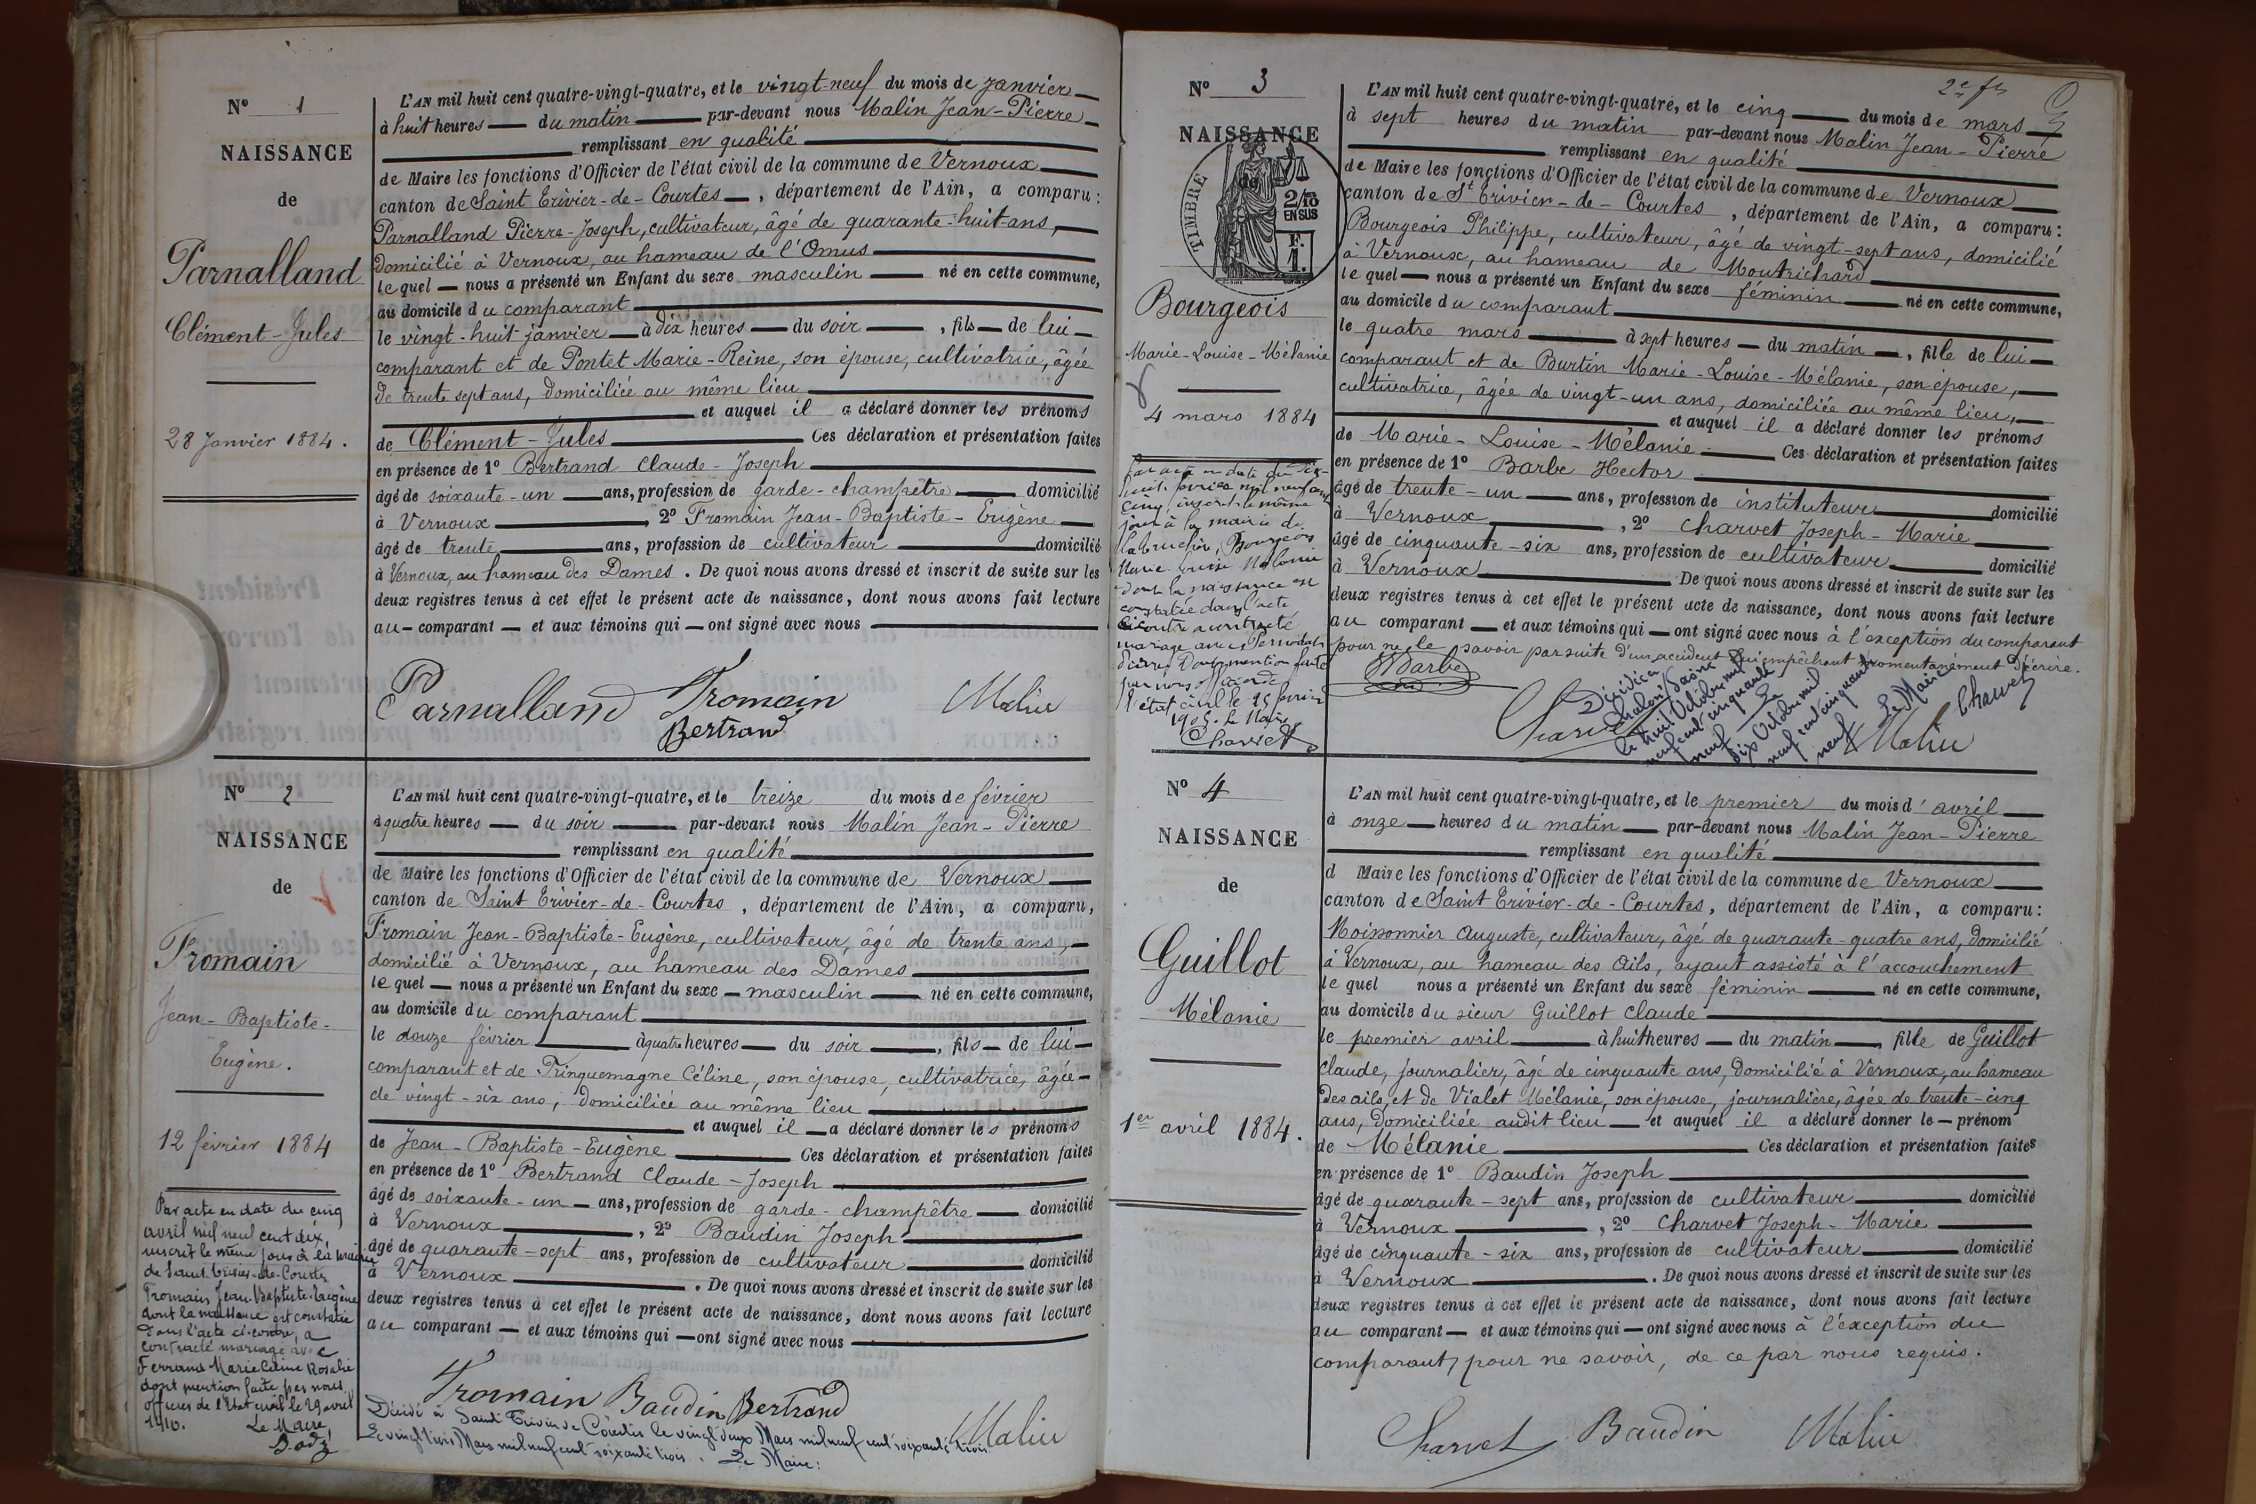 N° 1
NAISSANCE
de
Parnalland
Clément-Jules
28 Janvier 1884.
L'AN mil huit cent quatre-vingt-quatre, et le vingt-neuf du mois de janvier
à huit heures du matin par-devant nous Malin Jean-Pierre
remplissant en qualité
de Maire les fonctions d'Officier de l'état civil de la commune de Vernoux
canton de Saint Trivier-de-Courtes, département de l'Ain, a comparu :
Parnalland Pierre-Joseph, cultivateur, âgé de quarante-huit ans,
domicilié à Vernoux, au hameau de l'Omus
lequel nous a présenté un Enfant du sexe masculin né en cette commune,
au domicile du comparant
le vingt-huit janvier à dix heures du soir, fils de lui
comparant et de Pontet Marie-Reine, son épouse, cultivatrice, âgée
de trente sept ans, domiciliée au même lieu
et auquel il a déclaré donner les prénoms
de Clément-Jules Ces déclaration et présentation faites
en présence de 1° Bertrand Claude-Joseph
âgé de soixante-un ans, profession de garde-champêtre domicilié
à Vernoux, 2° Fromain Jean-Baptiste-Eugène
âgé de trente ans, profession de cultivateur domicilié
à Vernoux, au hameau des Dames. De quoi nous avons dressé et inscrit de suite sur les
deux registres tenus à cet effet le présent acte de naissance, dont nous avons fait lecture
au comparant et aux témoins qui ont signé avec nous
Parnalland Fromain Malin
Bertrand
N° 2
NAISSANCE
de
Fromain
Jean-Baptiste-
Eugène.
12 février 1884
Par acte en date du cinq
avril mil neuf cent dix,
inscrit le même jour à la mairie
de Saint-Trivier-de-Courtes
Fromain Jean-Baptiste-Eugène
dont la naissance est constatée
dans l'acte ci-contre, a
contracté mariage avec
Ferrand Marie Rosalie
dont mention faite par nous
officier de l'Etat civil le 29 avril
1910. Le Maire,
L'AN mil huit cent quatre-vingt-quatre, et le treize du mois de février
à quatre heures du soir par-devant nous Malin Jean-Pierre
remplissant en qualité
de Maire les fonctions d'Officier de l'état civil de la commune de Vernoux
canton de Saint Trivier-de-Courtes, département de l'Ain, a comparu,
Fromain Jean-Baptiste-Eugène, cultivateur, âgé de trente ans,
domicilié à Vernoux, au hameau des Dames
lequel nous a présenté un Enfant du sexe masculin né en cette commune,
au domicile du comparant
le douze février à quatre heures du soir, fils de lui
comparant et de Tringuemagne Céline, son épouse, cultivatrice, âgée
de vingt-six ans, domiciliée au même lieu
et auquel il a déclaré donner les prénoms
de Jean-Baptiste-Eugène Ces déclaration et présentation faites
en présence de 1° Bertrand Claude-Joseph
âgé de soixante-un ans, profession de garde-champêtre domicilié
à Vernoux, 2° Baudin Joseph
âgé de quarante-sept ans, profession de cultivateur domicilié
à Vernoux. De quoi nous avons dressé et inscrit de suite sur les
deux registres tenus à cet effet le présent acte de naissance, dont nous avons fait lecture
au comparant et aux témoins qui ont signé avec nous
Fromain Baudin Bertrand Malin
Décédé à Saint Trivier de Courtes le vingt deux Mars mil neuf cent soixante trois
Le vingt trois Mars mil neuf cent soixante trois. Le Maire:
N° 3
NAISSANCE
de
TIMBRE
2/10
EN SUS
F.
1.
Bourgeois
Marie-Louise-Mélanie
4 mars 1884
Par acte en date du dix-
huit février mil neuf cent
cinq, inscrit le même
jour à la mairie de
Bourgeois
Marie Louise Mélanie
dont la naissance est
constatée dans l'acte
ci-contre a contracté
mariage avec
Pierre Dont mention faite
par nous officier de
l'état civil le 25 février
1905. Le Maire
Charvet
2e fs
L'AN mil huit cent quatre-vingt-quatre, et le cinq du mois de mars
à sept heures du matin par-devant nous Malin Jean-Pierre
remplissant en qualité
de Maire les fonctions d'Officier de l'état civil de la commune de Vernoux
canton de St Trivier-de-Courtes, département de l'Ain, a comparu :
Bourgeois Philippe, cultivateur, âgé de vingt-sept ans, domicilié
à Vernoux, au hameau de Montrichard
lequel nous a présenté un Enfant du sexe féminin né en cette commune,
au domicile du comparant
le quatre mars à sept heures du matin, fille de lui
comparant et de Burtin Marie-Louise-Mélanie, son épouse,
cultivatrice, âgée de vingt-un ans, domiciliée au même lieu,
et auquel il a déclaré donner les prénoms
de Marie-Louise-Mélanie Ces déclaration et présentation faites
en présence de 1° Barbe Hector
âgé de trente-un ans, profession de instituteur domicilié
à Vernoux, 2° Charvet Joseph-Marie
âgé de cinquante-six ans, profession de cultivateur domicilié
à Vernoux De quoi nous avons dressé et inscrit de suite sur les
deux registres tenus à cet effet le présent acte de naissance, dont nous avons fait lecture
au comparant et aux témoins qui ont signé avec nous à l'exception du comparant
pour ne le savoir par suite d'un accident l'empêchant momentanément d'écrire.
HBarbe
Charvet
Malin
Décédée à
Chalon s/Saône
le huit Octobre mil
neuf cent cinquante
neuf Le
dix Octobre mil
neuf cent cinquante
neuf Le Maire
Charvet
N° 4
NAISSANCE
de
Guillot
Mélanie
1er avril 1884.
L'AN mil huit cent quatre-vingt-quatre, et le premier du mois d'avril
à onze heures du matin par-devant nous Malin Jean-Pierre
remplissant en qualité
d Maire les fonctions d'Officier de l'état civil de la commune de Vernoux
canton de Saint Trivier-de-Courtes, département de l'Ain, a comparu :
Moissonnier Auguste, cultivateur, âgé de quarante-quatre ans, domicilié
à Vernoux, au hameau des Ails, ayant assisté à l'accouchement
lequel nous a présenté un Enfant du sexe féminin né en cette commune,
au domicile du sieur Guillot Claude
le premier avril à huit heures du matin, fille de Guillot
Claude, journalier, âgé de cinquante ans, domicilié à Vernoux, au hameau
des ails, et de Vialet Mélanie, son épouse, journalière, âgée de trente-cinq
ans, domiciliée audit lieu et auquel il a déclaré donner le prénom
de Mélanie Ces déclaration et présentation faites
en présence de 1° Baudin Joseph
âgé de quarante-sept ans, profession de cultivateur domicilié
à Vernoux, 2° Charvet Joseph-Marie
âgé de cinquante-six ans, profession de cultivateur domicilié
à Vernoux. De quoi nous avons dressé et inscrit de suite sur les
deux registres tenus à cet effet le présent acte de naissance, dont nous avons fait lecture
au comparant et aux témoins qui ont signé avec nous à l'exception du
comparant, pour ne savoir, de ce par nous requis.
Charvet Baudin Malin